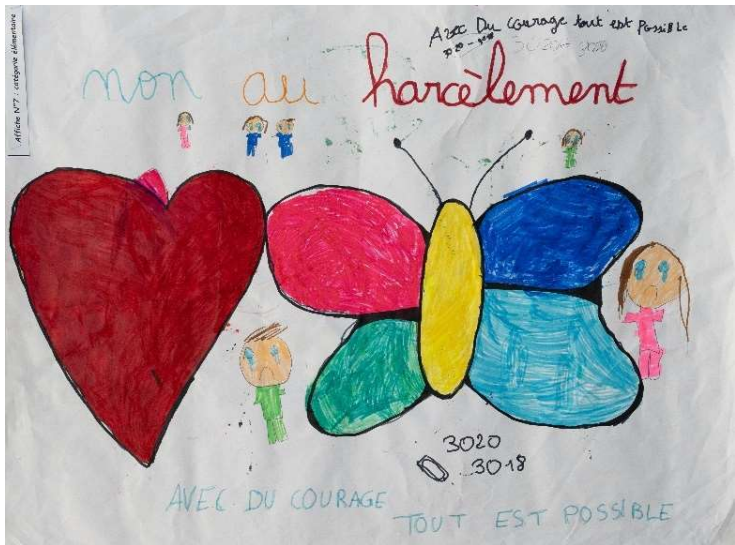 Affiche N°7 : catégorie élémentaire
Avec Du courage tout est PossiBLe
3020 - 3018
non au harcèlement
3020
3018
AVEC DU COURAGE
TOUT EST POSSIBLE